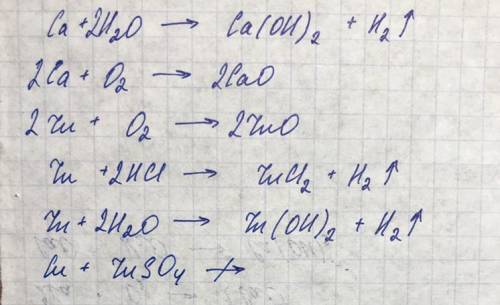 Ca + 2H₂O → Ca(OH)₂ + H₂↑
2Ca + O₂ → 2CaO
2Zn + O₂ → 2ZnO
Zn + 2HCl → ZnCl₂ + H₂↑
Zn + 2H₂O → Zn(OH)₂ + H₂↑
Cu + ZnSO₄ ↛